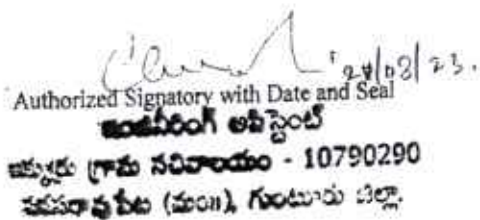 24/08/23.
Authorized Signatory with Date and Seal
ఇంజనీరింగ్ అసిస్టెంట్
ఇక్కుర్రు గ్రామ సచివాలయం - 10790290
నరసరావుపేట (మం॥), గుంటూరు జిల్లా.